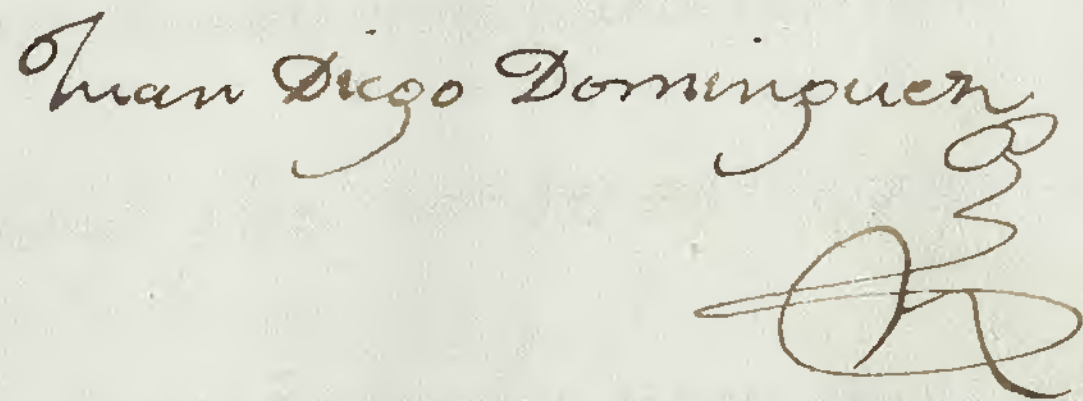 Juan Diego Dominguez